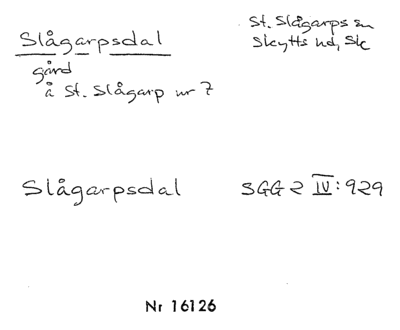 Slågarpsdal
St. Slågarps sn
Skytts hd, Sk
gård
å St. Slågarp nr 7
Slågarpsdal
SGG 2 IV: 929
Nr 16126